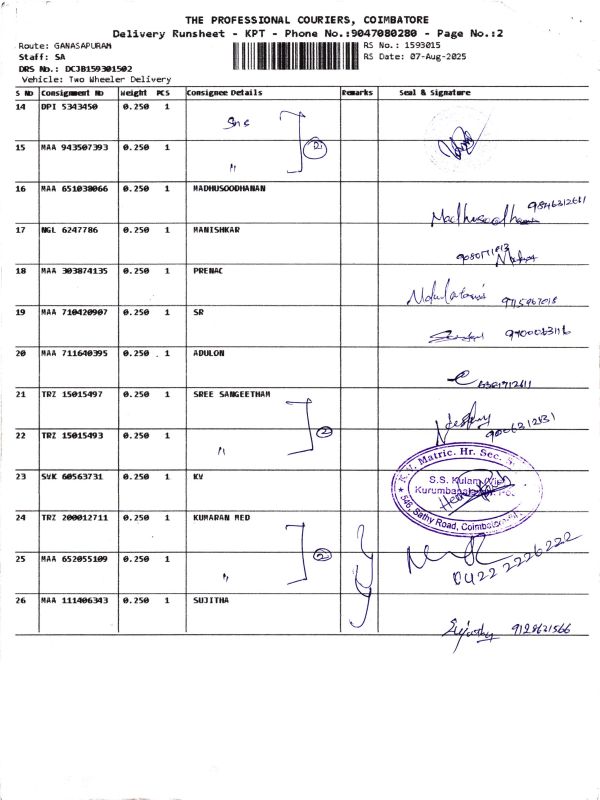 THE PROFESSIONAL COURIERS, COIMBATORE
Delivery Runsheet - KPT - Phone No.:9047080280 - Page No.:2
Route: GANASAPURAM
RS No.: 1593015
Staff: SA
RS Date: 07-Aug-2025
DRS No.: DCJB159301502
Vehicle: Two Wheeler Delivery
S No Consignment No Weight PCS Consignee Details Remarks Seal & Signature
14 DPI 5343450 0.250 1 Sns
15 MAA 943507393 0.250 1 " 2
16 MAA 651038066 0.250 1 MADHUSOODHANAN
Madhusoodhanan
17 NGL 6247786 0.250 1 MANISHKAR
18 MAA 303874135 0.250 1 PRENAC
19 MAA 710420907 0.250 1 SR
20 MAA 711640395 0.250 1 ADULON
21 TRZ 15015497 0.250 1 SREE SANGEETHAM
22 TRZ 15015493 0.250 1 " 2
23 SVK 60563731 0.250 1 KV
K.V. Matric. Hr. Sec.
S.S. Kulam
546, Sathy Road, Coimbatore
24 TRZ 200012711 0.250 1 KUMARAN MED
25 MAA 652055109 0.250 1 " 2
0422 2226222
26 MAA 111406343 0.250 1 SUJITHA
9128621566